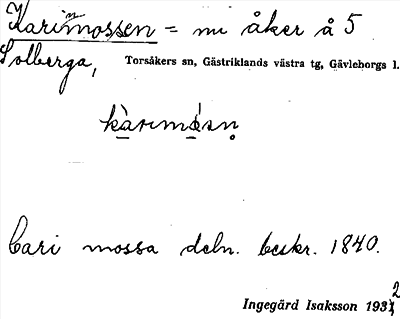 Karinmossen = nu åker å 5
Solberga, Torsåkers sn, Gästriklands västra tg, Gävleborgs l.
kàrımósn̥
Cari mossa deln. beskr. 1840.
Ingegärd Isaksson 1932